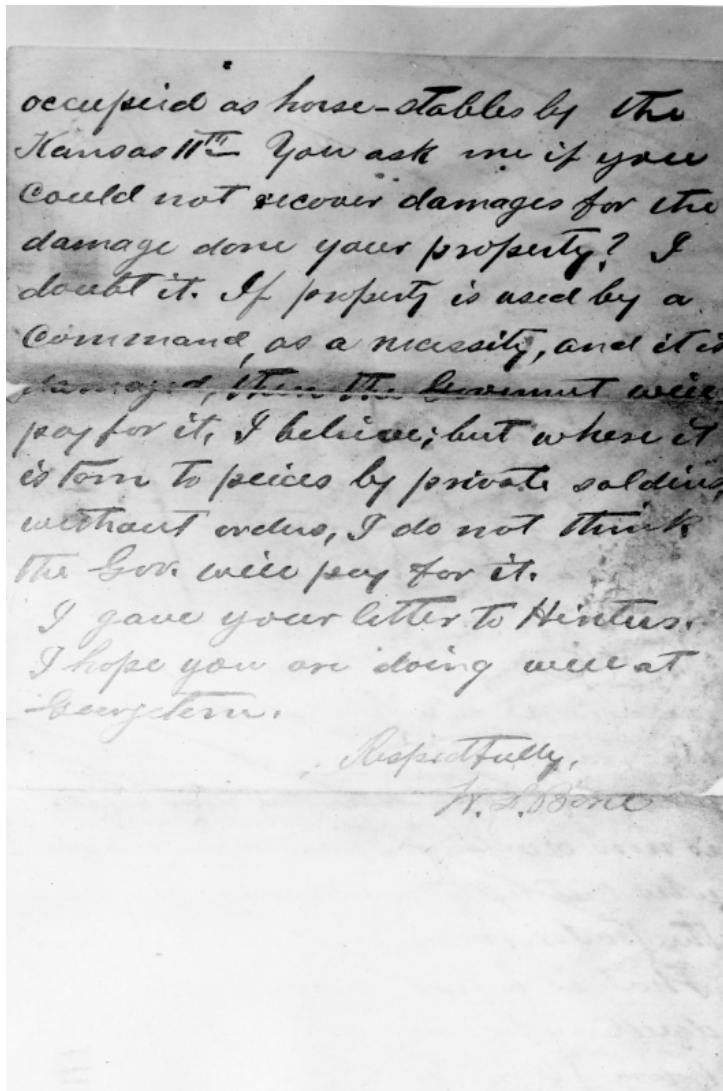 occupied as horse-stables by the
Kansas 11th You ask me if you
could not recover damages for the
damage done your property? I
doubt it. If property is used by a
command, as a necessity, and it is
damaged, then the Goverment will
pay for it, I believe; but where it
is torn to peices by private soldiers
without orders, I do not think
the Gov. will pay for it.
I gave your letter to Hinters.
I hope you are doing well at
Georgetown.
Respectfully,
W. S.